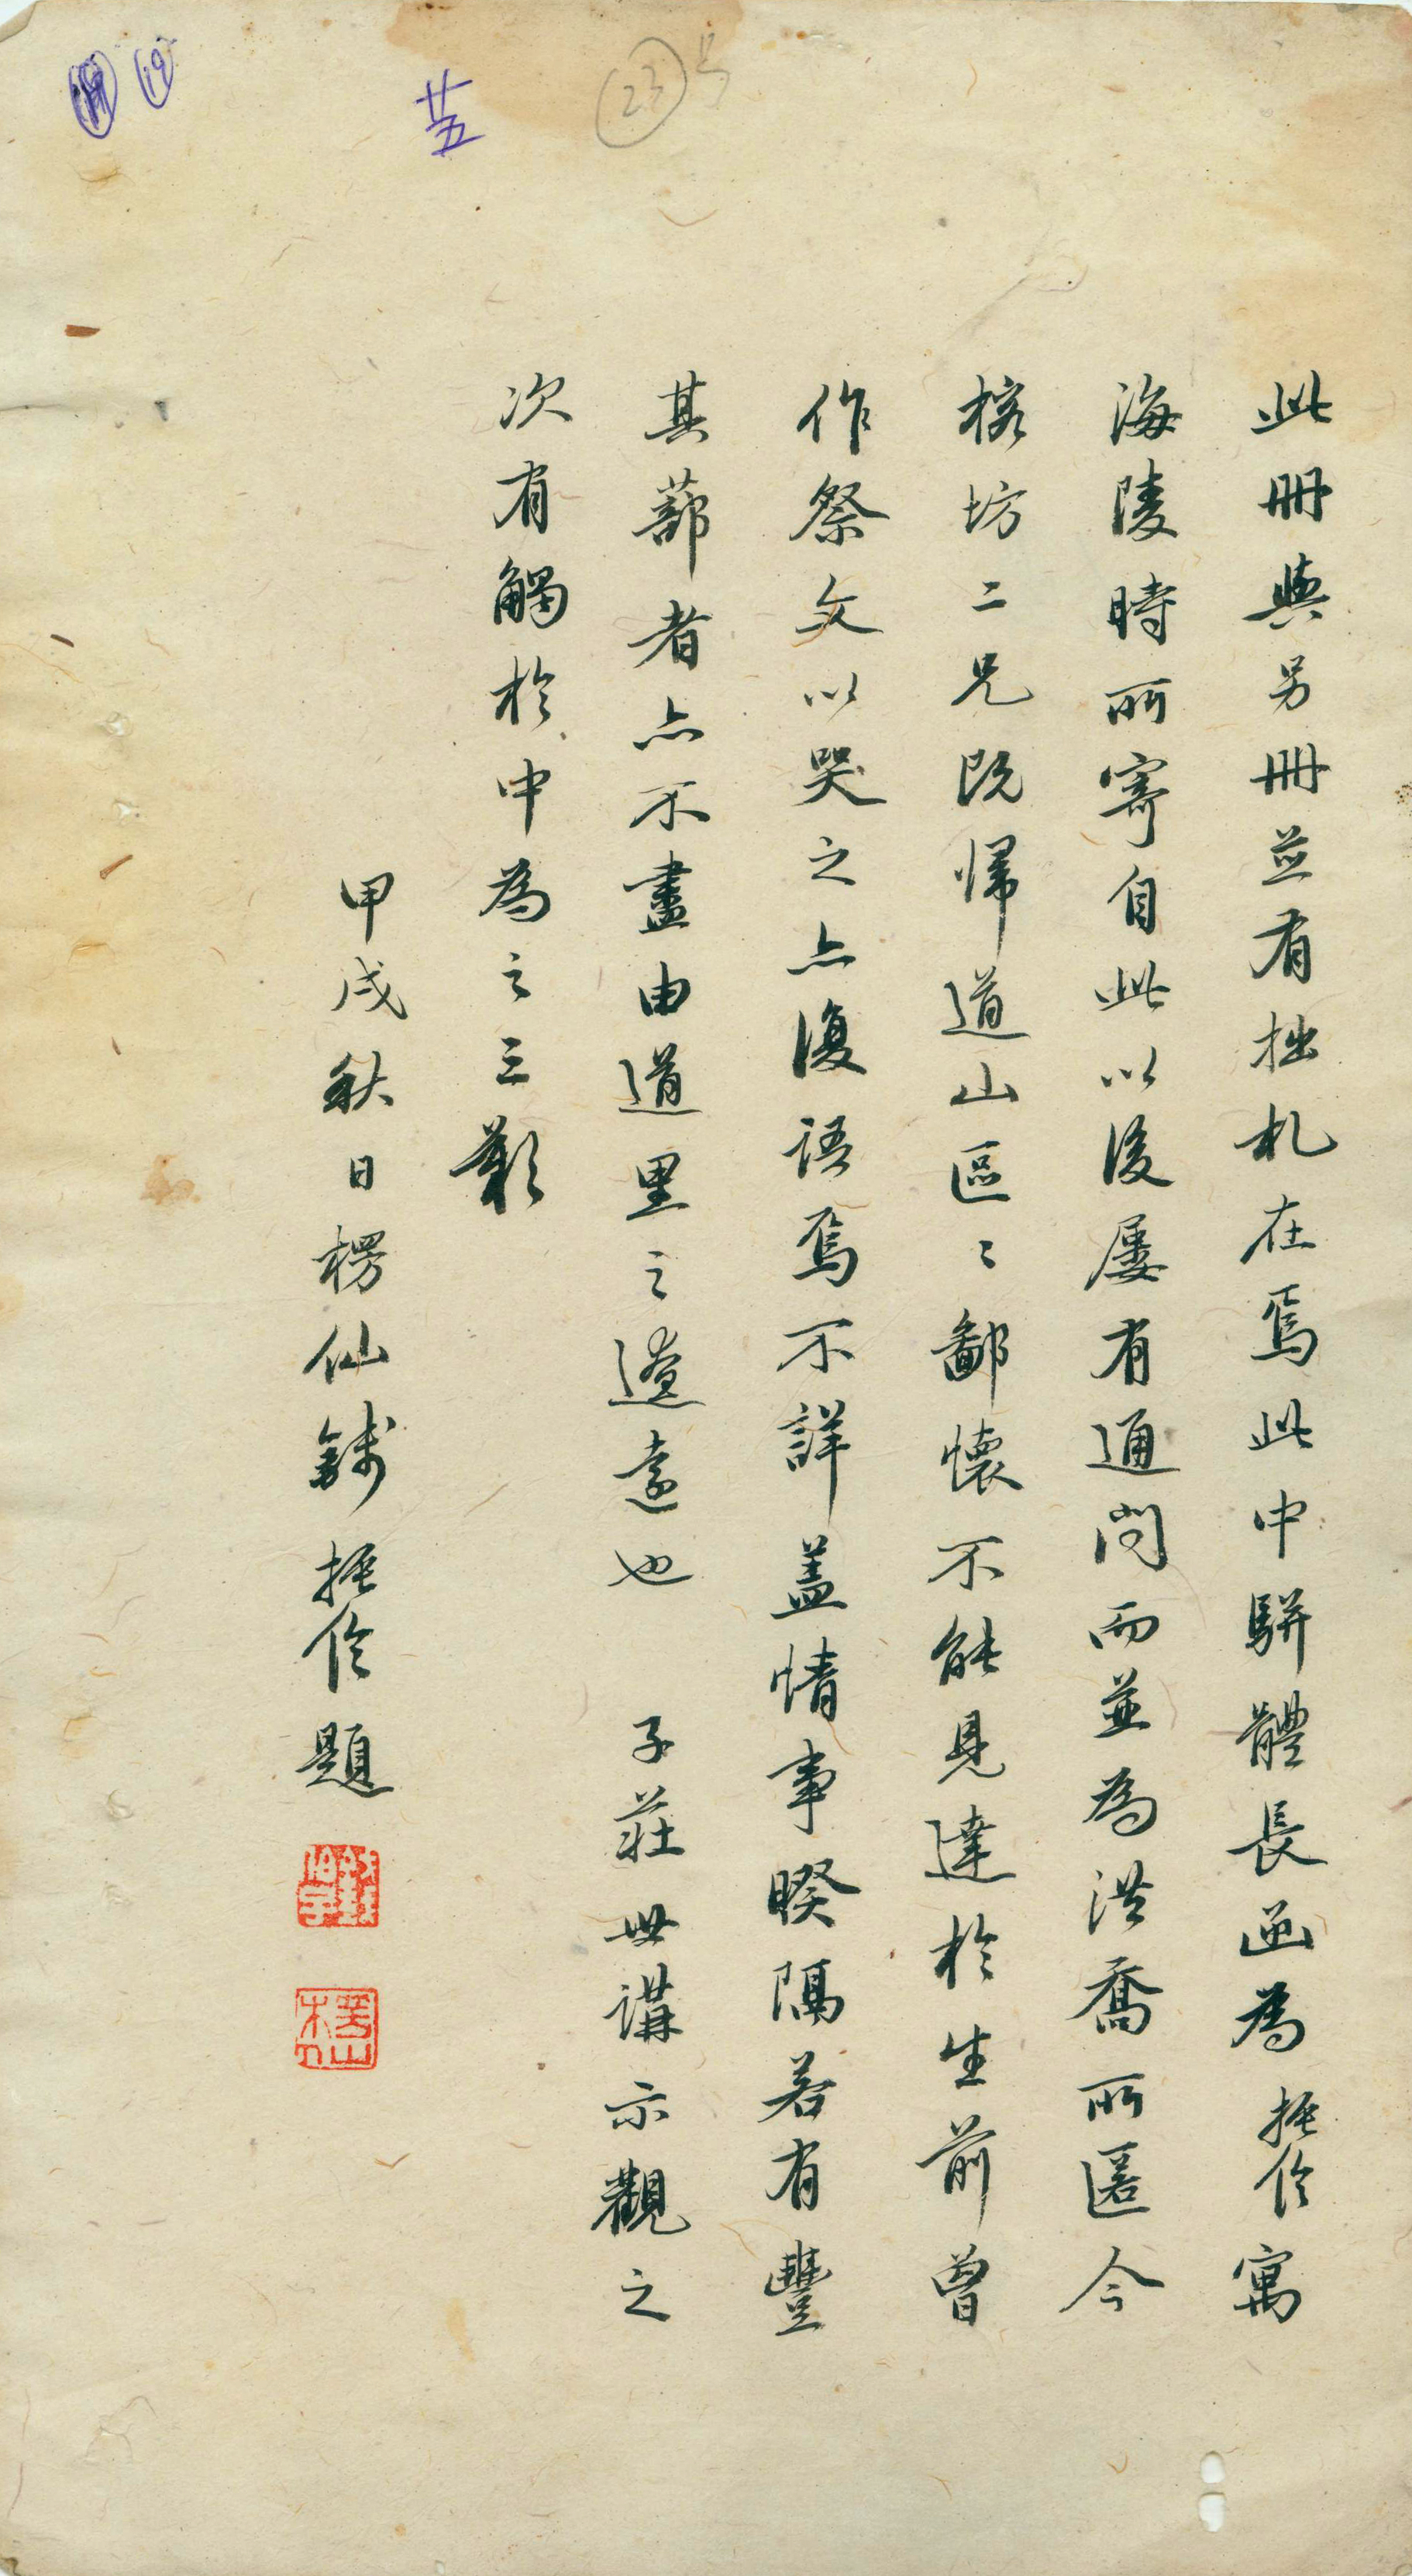 19
廿五
23号
此冊與另冊並有拙札在焉此中駢體長函為振倫寓
海陵時所寄自此以後屢有通問而並為洪喬所匿今
榕坊二兄既歸道山區〻鄙懷不能見達於生前曾
作祭文以哭之亦復語焉不詳蓋情事暌隔若有豐
其蔀者亦不盡由道里之遼遠也 子莊世講示觀之
次有觸於中為之三歎
甲戌秋日楞仙錢振倫題
楞仙